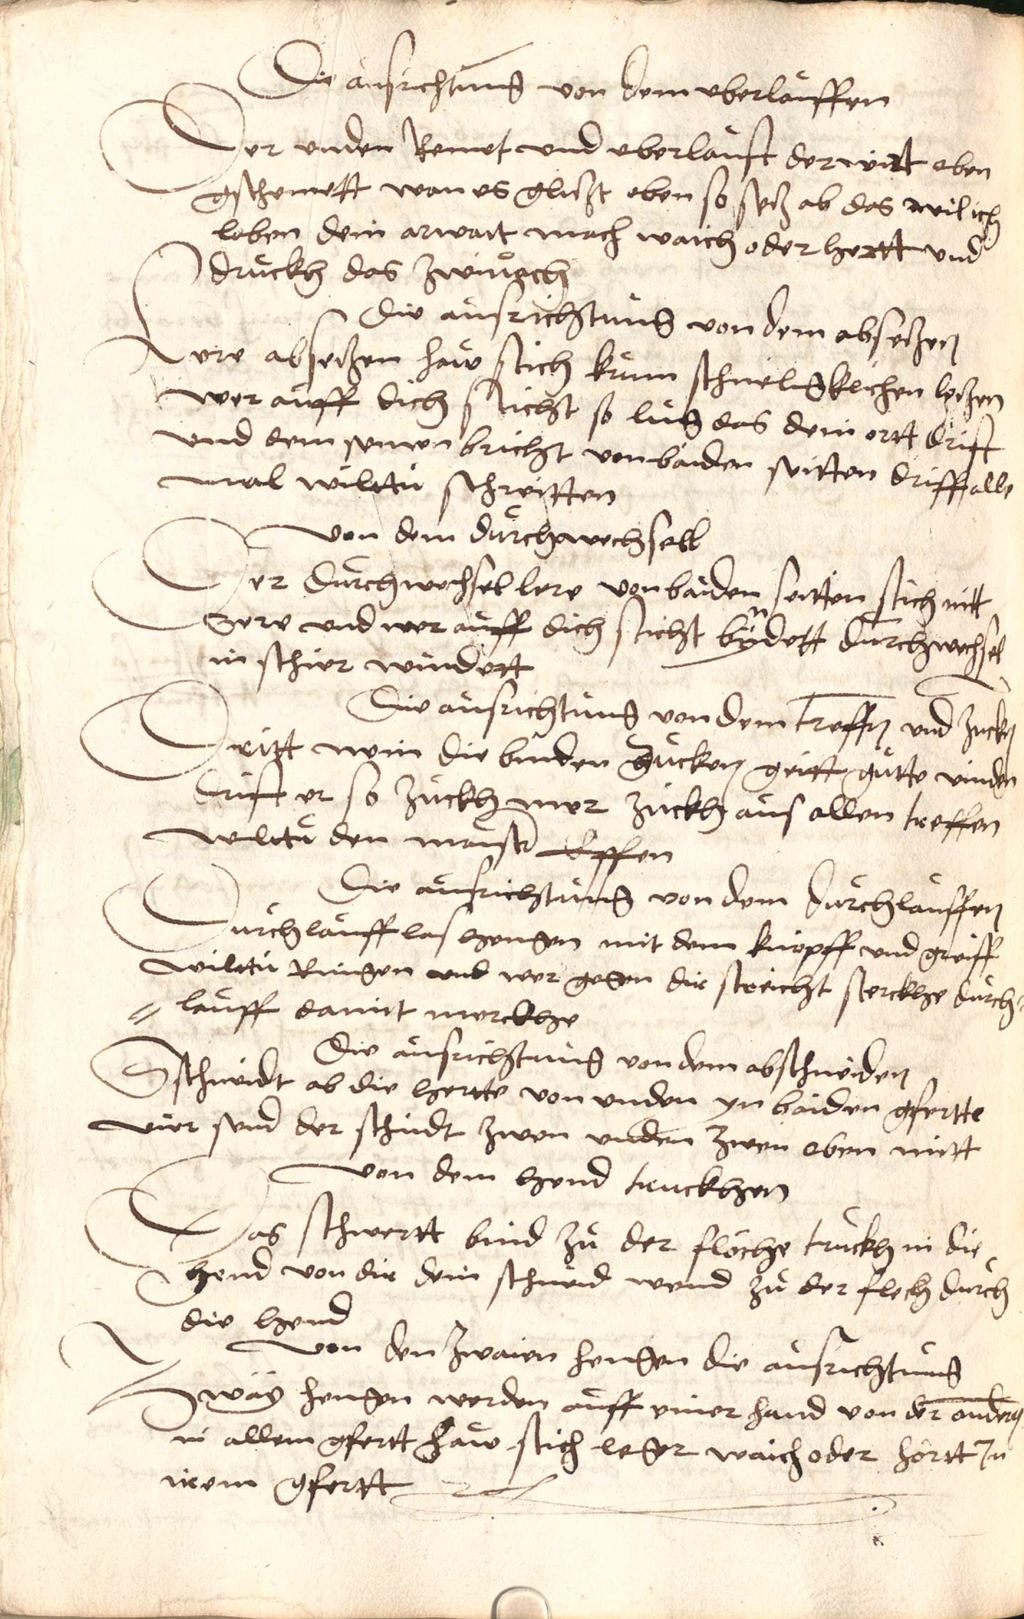 Die ausrichtung von dem uberlauffen
Der unden Remet und uberlauft der wirt oben
gschemett wan es glizt oben so setz ab das wil ich
loben dein arwait mach waich oder hertt und
druckh das zwivach
Die ausrichtung von dem absetzen
Lere absetzen haw stich kum schnelligklichen letzen
wer auff dich sticht so lug das dein ortt drift
und dem seinen bricht von baiden seitten driff alle
mal wilttu schreitten
Von dem durchwechsell
Der durchwechsel lere von baiden seitten stich mitt
Sere und wer auff dich sticht byndett durchwechsel
in schier windett
Die ausrichtung von dem treffen und zucken
Dritt nein die binden zucken geitt gutte vinden
drift er so zuckh mer zuckh aus allen treffen
wilttu den maister effen
Die ausrichtung von dem durchlauffen
Durchlauff las hengen mit dem knopff und greiff
wilttu Ringen und wer gegen dir streicht sterckhe durch
lauff damit merckhe
Die ausrichtung von dem abschneiden
Schneidt ab die hertte von unden yn baiden gfertte
vier send der schnidt zwen unden zwen oben mitt
Von dem hend truckhen
Das schwertt bind zu der flöche truckh in die
hend von dir dein schneid wend zu der flech durch
die hend
Von den zwaien hengen die ausrichtung
Zway hengen werden auff einer hand von der anderen
in allem gfertt haw stich leger waich oder hörtt In
irem gfertt